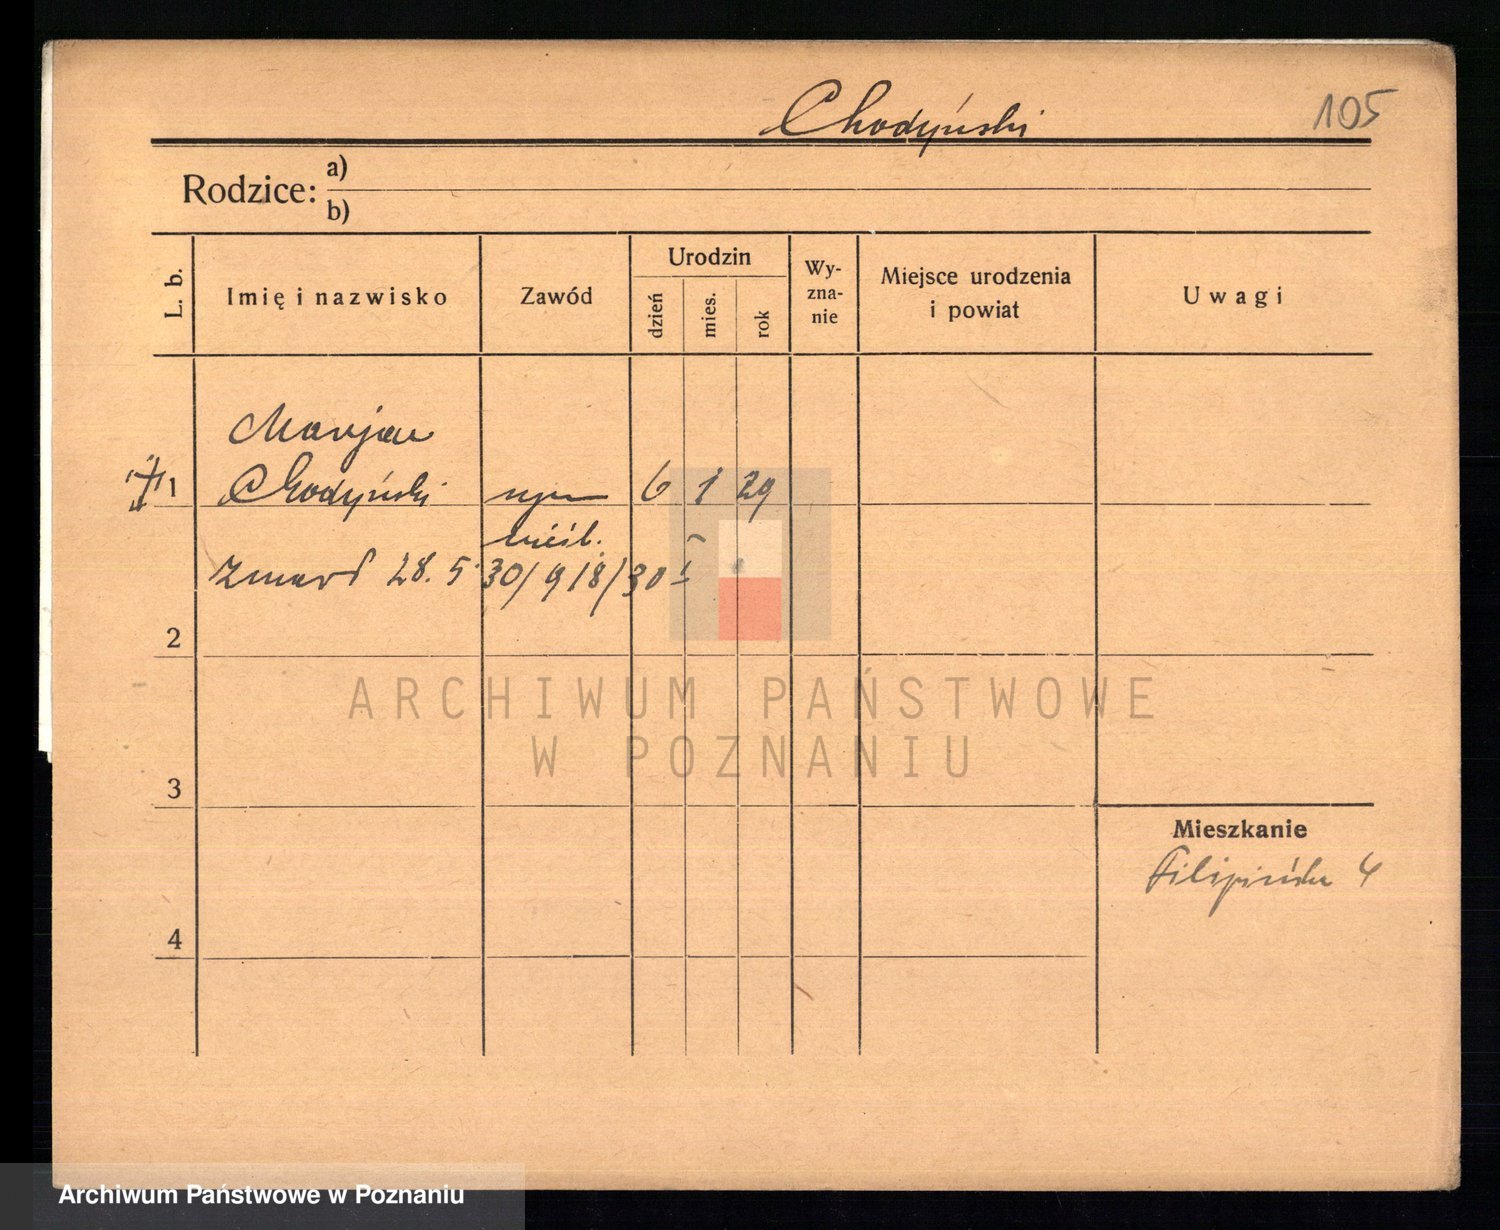 Chodyński
105
Rodzice:
a)
b)
L. b.
Imię i nazwisko
Zawód
Urodzin
dzień
mies.
rok
Wy-
zna-
nie
Miejsce urodzenia
i powiat
Uwagi
Marjan
1 Chodyński syn 6 1 29
nieśl.
Zmarł 28. 5. 30/918/30 I
2
ARCHIWUM PAŃSTWOWE
W POZNANIU
3
Mieszkanie
Filipińska 4
4
Archiwum Państwowe w Poznaniu